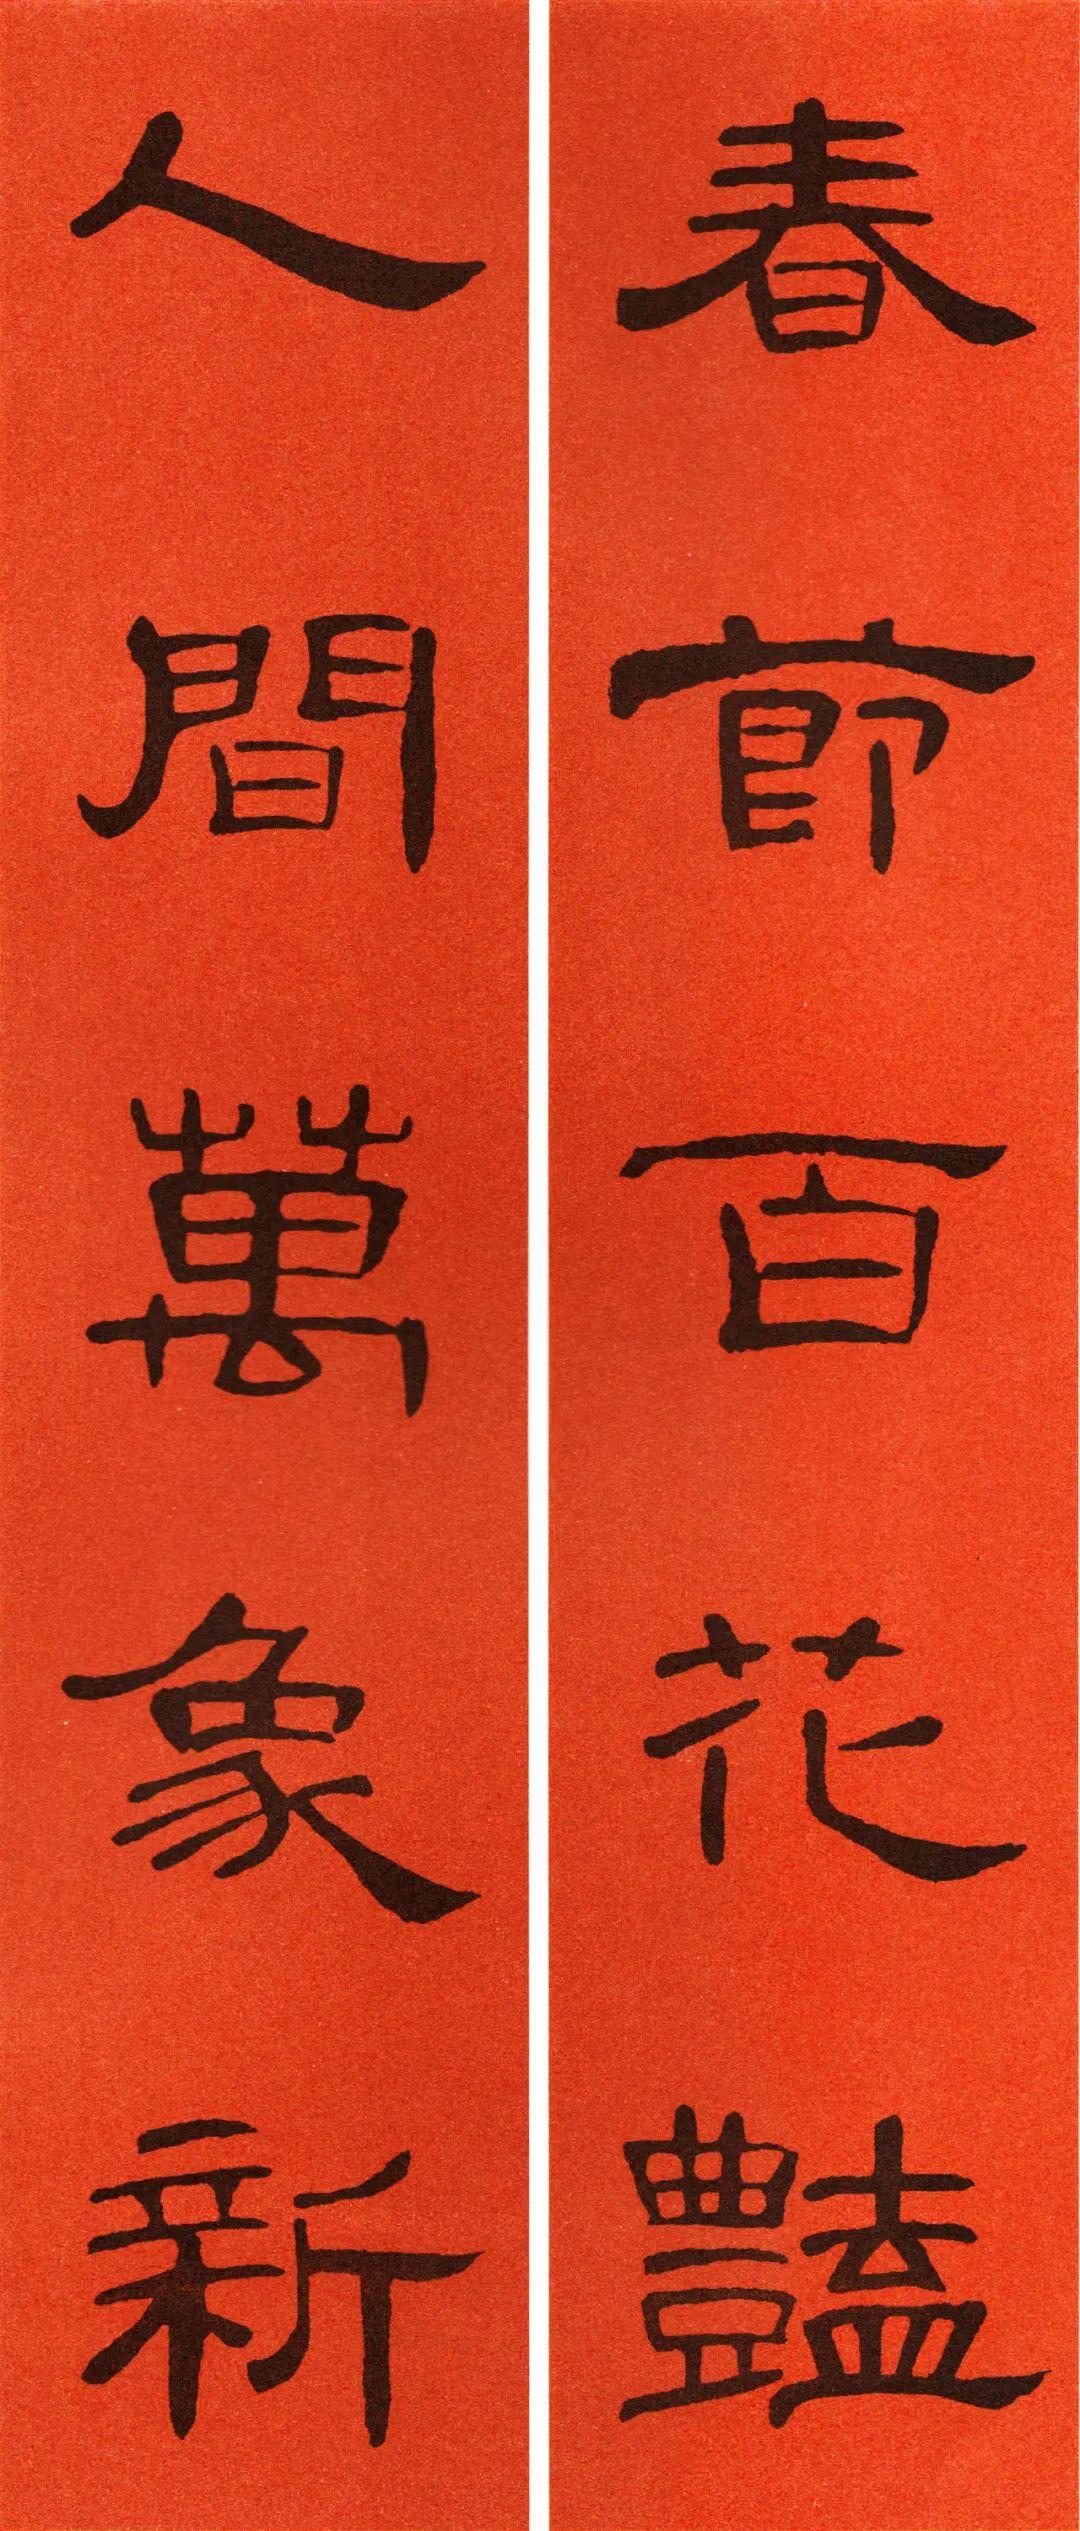 春節百花豔
人間萬象新